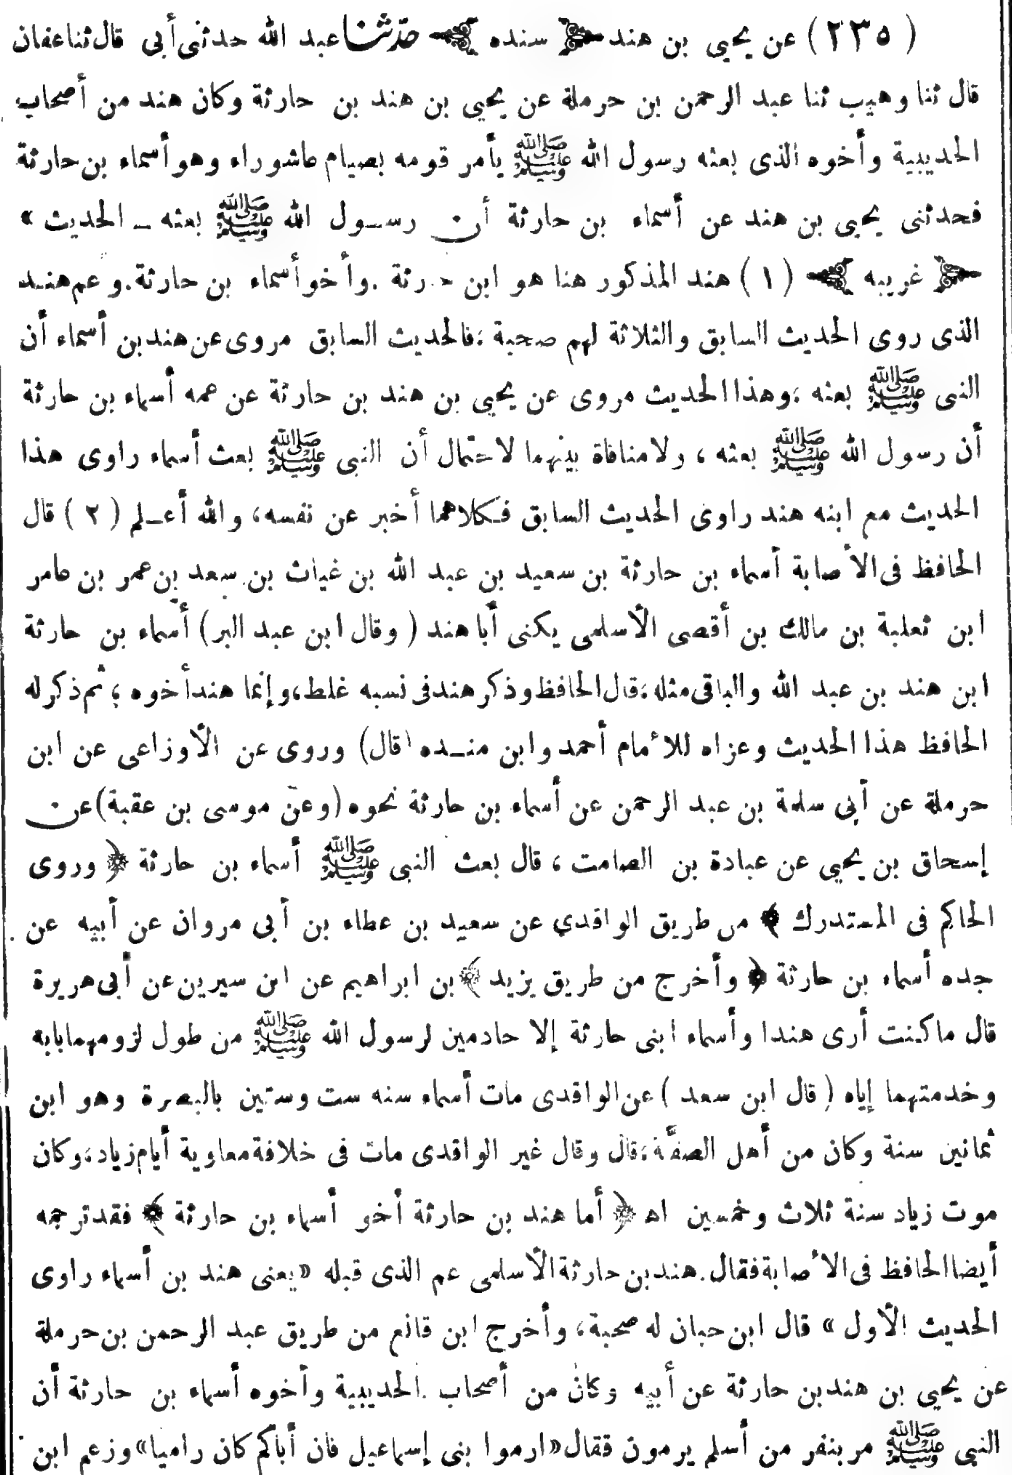 ( ٢٣٥ ) عن يحيى بن هند ﴿ سنده ﴾ حدّثنا عبد الله حدثنى أبى قال ثنا عفان
قال ثنا وهيب ثنا عبد الرحمن بن حرملة عن يحيى بن هند بن حارثة وكان هند من أصحاب
الحديبية وأخوه الذى بعثه رسول الله ﷺ يأمر قومه بصيام عاشوراء وهو أسماء بن حارثة
فحدثنى يحيى بن هند عن أسماء بن حارثة أن رســول الله ﷺ بعثه ـ الحديث »
﴿ غريبه ﴾ ( ١ ) هند المذكور هنا هو ابن حارثة . وأخو أسماء بن حارثة . وعم هنـد
الذى روى الحديث السابق والثلاثة لهم صحبة ؛ فالحديث السابق مروى عن هند بن أسماء أن
النبى ﷺ بعثه ؛ وهذا الحديث مروى عن يحيى بن هند بن حارثة عن عمه أسماء بن حارثة
أن رسول الله ﷺ بعثه ، ولا منافاة بينهما لاحتمال أن النبى ﷺ بعث أسماء راوى هذا
الحديث مع ابنه هند راوى الحديث السابق فـكلاهما أخبر عن نفسه ، والله أعـلم ( ٢ ) قال
الحافظ فى الأصابة أسماء بن حارثة بن سعيد بن عبد الله بن غياث بن سعد بن عمر بن عامر
ابن ثعلبة بن مالك بن أقصى الأسلمى يكنى أبا هند ( وقال ابن عبد البر ) أسماء بن حارثة
ابن هند بن عبد الله والباقى مثله ؛ قال الحافظ وذكر هند فى نسبه غلط ، وإنما هند أخوه ؛ ثم ذكر له
الحافظ هذا الحديث وعزاه للأمام أحمد وابن منـده ( قال ) وروى عن الأوزاعى عن ابن
حرملة عن أبى سلمة بن عبد الرحمن عن أسماء بن حارثة نحوه ( وعن موسى بن عقبة ) عن
إسحاق بن يحيى عن عبادة بن الصامت ، قال بعث النبى ﷺ أسماء بن حارثة ﴿ وروى
الحاكم فى المستدرك ﴾ من طريق الواقدى عن سعيد بن عطاء بن أبى مروان عن أبيه عن
جده أسماء بن حارثة ﴿ وأخرج من طريق يزيد ﴾ بن ابراهيم عن ابن سيرين عن أبى هريرة
قال ما كنت أرى هندا وأسماء ابنى حارثة إلا خادمين لرسول الله ﷺ من طول لزومهما بابه
وخدمتهما إياه ( قال ابن سعد ) عن الواقدى مات أسماء سنه ست وستين بالبصرة وهو ابن
ثمانين سنة وكان من أهل الصفّة ؛ قال وقال غير الواقدى مات فى خلافة معاوية أيام زياد ؛ وكان
موت زياد سنة ثلاث وخمسين اهـ ﴿ أما هند بن حارثة أخو أسماء بن حارثة ﴾ فقد ترجمه
أيضا الحافظ فى الأصابة فقال . هند بن حارثة الأسلمى عم الذى قبله « يعنى هند بن أسماء راوى
الحديث الأول » قال ابن حبان له صحبة ، وأخرج ابن قانع من طريق عبد الرحمن بن حرملة
عن يحيى بن هند بن حارثة عن أبيه وكان من أصحاب الحديبية وأخوه أسماء بن حارثة أن
النبى ﷺ مر بنفر من أسلم يرمون فقال « ارموا بنى إسماعيل فان أباكم كان راميا » وزعم ابن